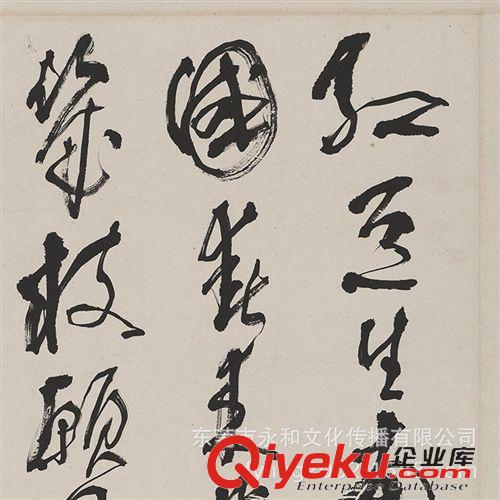 红豆生南
国春来
几枝愿
东莞市永和文化传播有限公司
Qiyeku.com 企业库
Enterprise Database